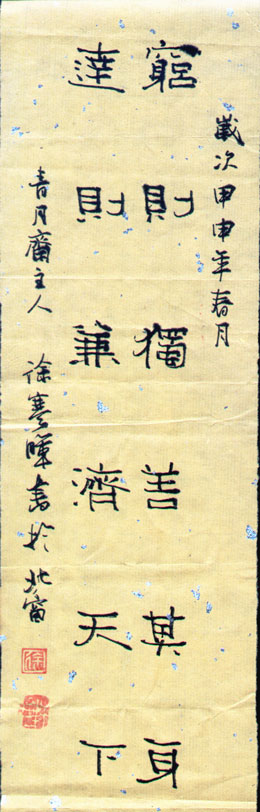 歲次甲申年春月
窮則獨善其身
達則兼濟天下
青月齋主人 徐謇暉書於北窗
徐